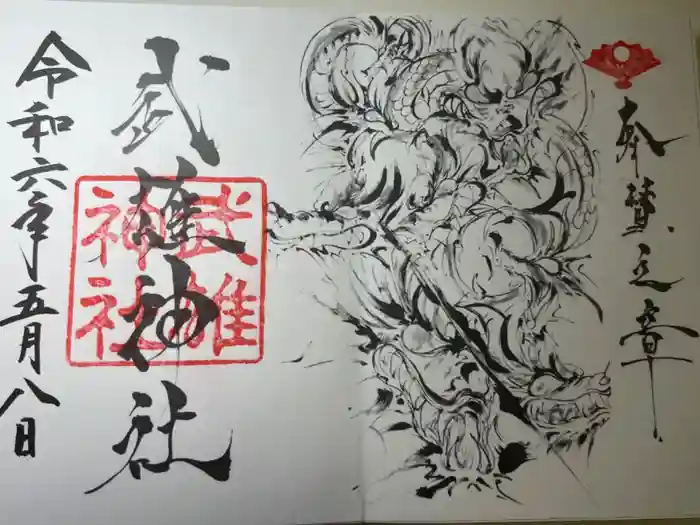 奉賛之章
武雄神社
武雄
神社
令和六年五月八日